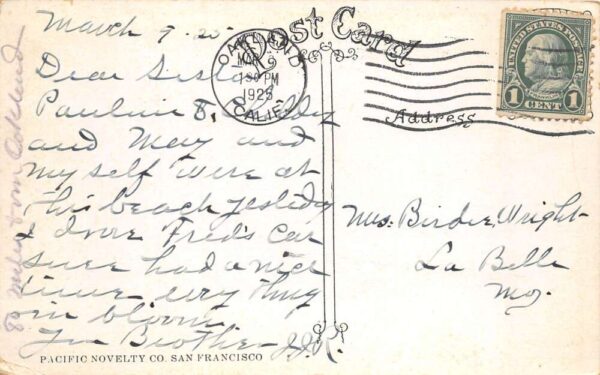 Post Card
March 9-25
OAKLAND
MAR 9
1 30 PM
1925
CALIF.
UNITED STATES POSTAGE
1 CENT 1
Dear Sister
Pauline &
and May and
my self were at
this beach yesterday
I drove Fred's Car
sure had a nice
time every thing
in bloom
Your Brother J.J.R.
80 miles from Oakland
Address
Mrs. Birdie Wright
La Belle
Mo.
PACIFIC NOVELTY CO. SAN FRANCISCO